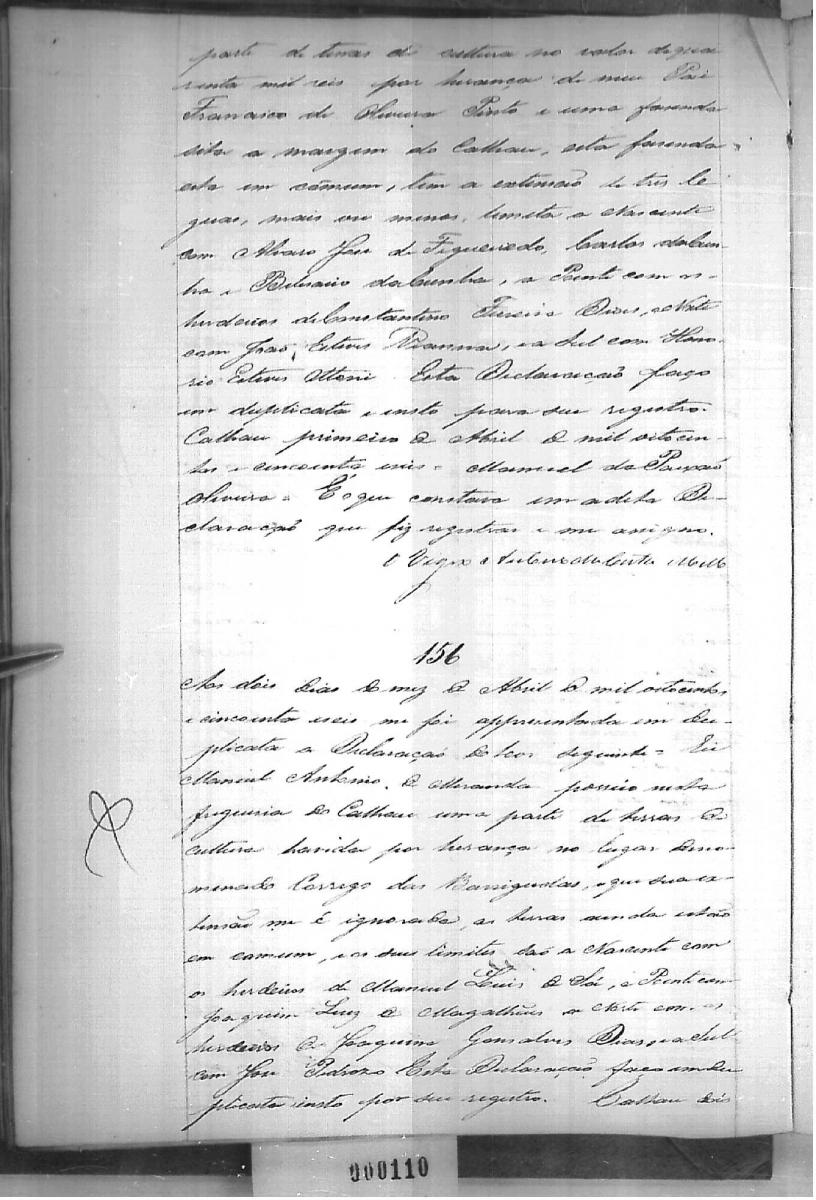 parte de terras de cultura no valor de qua
renta mil reis por herança de meu Pai
Francisco de Oliveira Pinto e uma fazenda
sita a margem do Calhau, esta fazenda
esta em cômum, tem a extensaõ de tres le
guas, mais ou menos, limita a Nascente
com Alvaro José de Figueiredo, Carlos da Cun-
ha e Belisario da Cunha, a Poente com os
herdeiros de Constantino Dias, a Norte
com Joaõ Esteves Vianna, e a Sul com Hono-
rio Esteves Ottoni. Esta Declaracaõ faço
em duplicata, e insto para seu registro.
Calhau primeiro D Abril D mil oitocen-
tos e cincoenta eseis = Manuel da Paixaõ
Oliveira = E o que constava em a dita De-
claracaõ que fiz registrar e me assigno.
O Vigr.
156
Aos dois dias Do mez D Abril D mil oitocentos
e cincoenta eseis me foi appresentada em Du-
plicata a Declaraçaõ Do teor seguinte = Eu
Manuel Antonio D Miranda possuo nesta
freguesia Do Calhau uma parte de terras D
cultura havida por herança no lugar Deno-
minado Corrego das Barrigudas, e que sua ex-
tensaõ me é ignorada, as terras ainda estão
em comum, e os seus limites saõ a Nascente com
os herdeiros de Manuel Luis D Sá, e Poente com
Joaquim Luiz D Magalhães a Norte com os
herdeiros D Joaquim Gonsalves Dias, e a Sul
com José Pedrozo Esta Declaraçaõ faço em Du
plicata e insto por seu registro. Calhau dois
000110